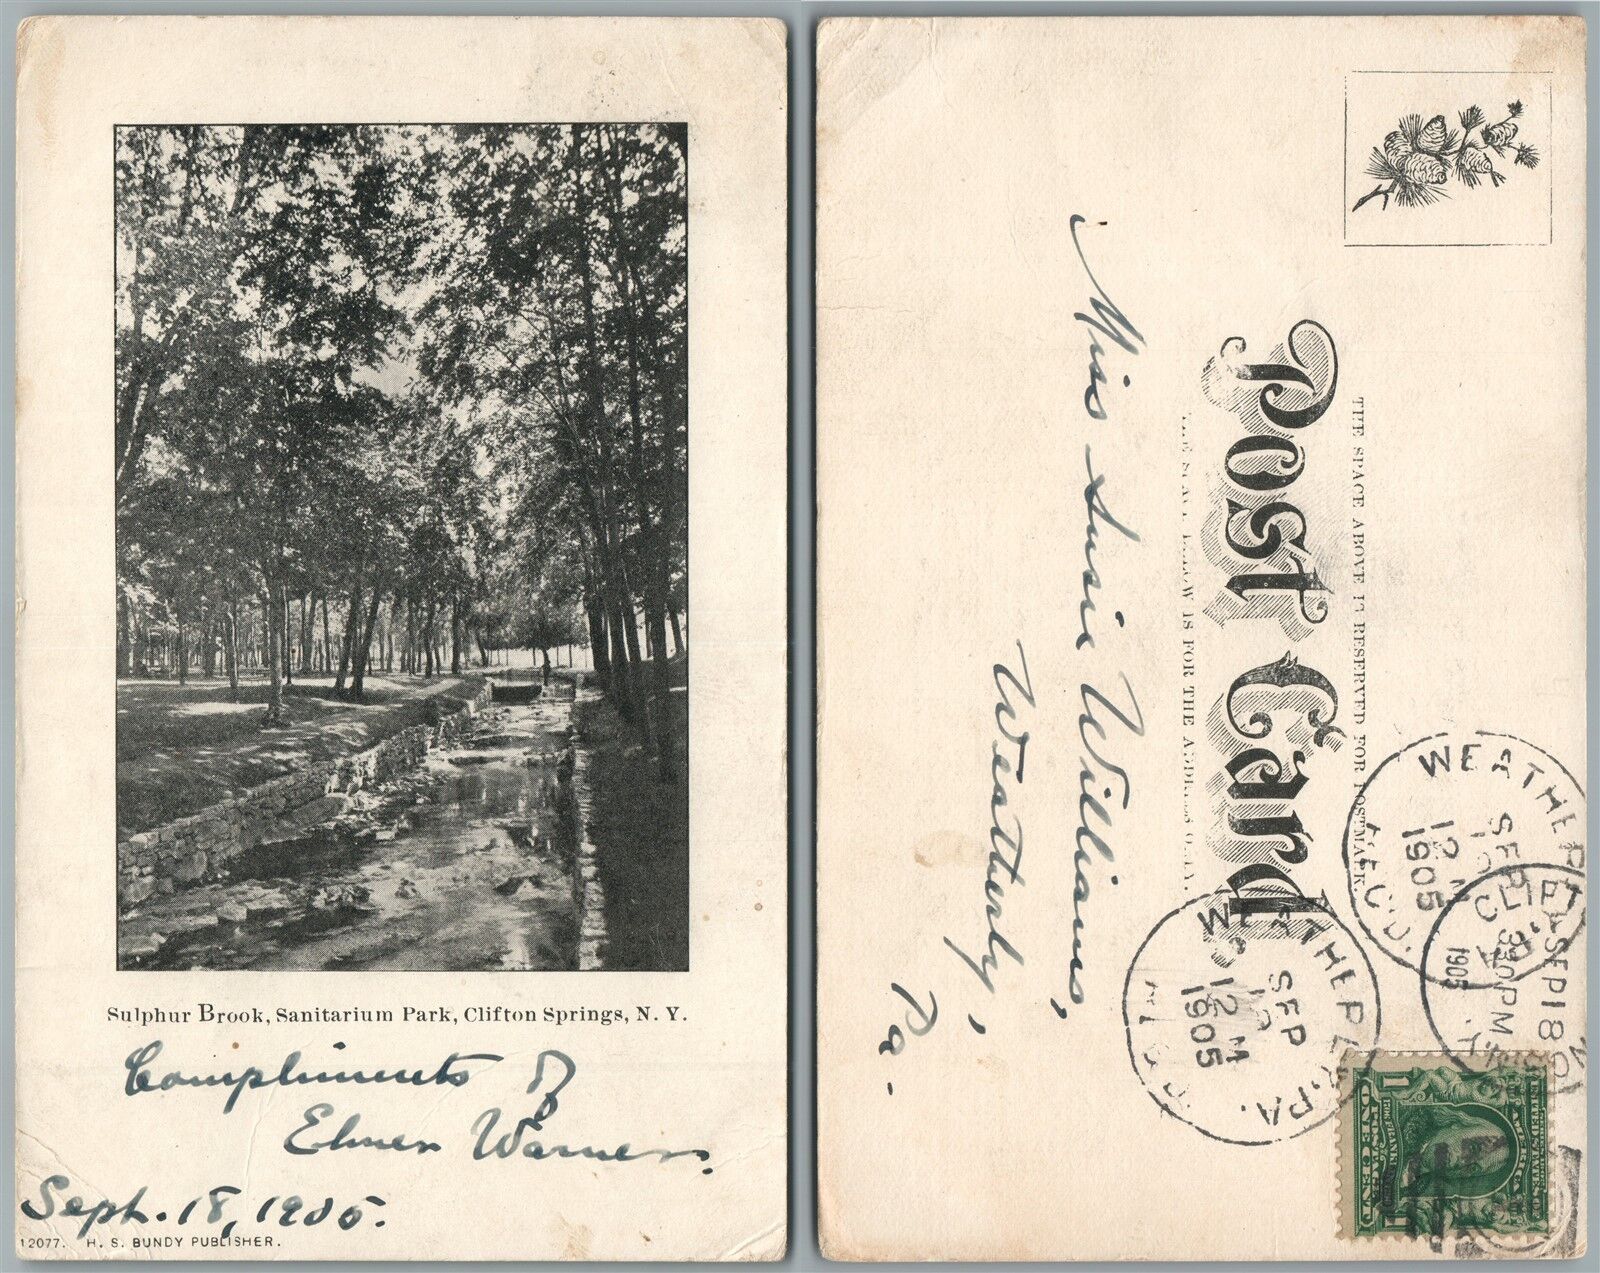 Sulphur Brook, Sanitarium Park, Clifton Springs, N. Y.
Compliments of
Elmer Warner.
Sept. 18, 1905.
12077. H. S. BUNDY PUBLISHER.
THE SPACE ABOVE IS RESERVED FOR POSTMARK.
Post Card
BELOW IS FOR THE ADDRESS ONLY.
Miss Susie Williams,
Weatherly,
Pa.
WEATHERLY, PA.
SEP
12 M
1905
REC'D.
WEATHERLY, PA.
SEP
12 M
1905
REC'D.
CLIFTON
SEP 18
330 PM
1905
N.Y.
1
ONE CENT